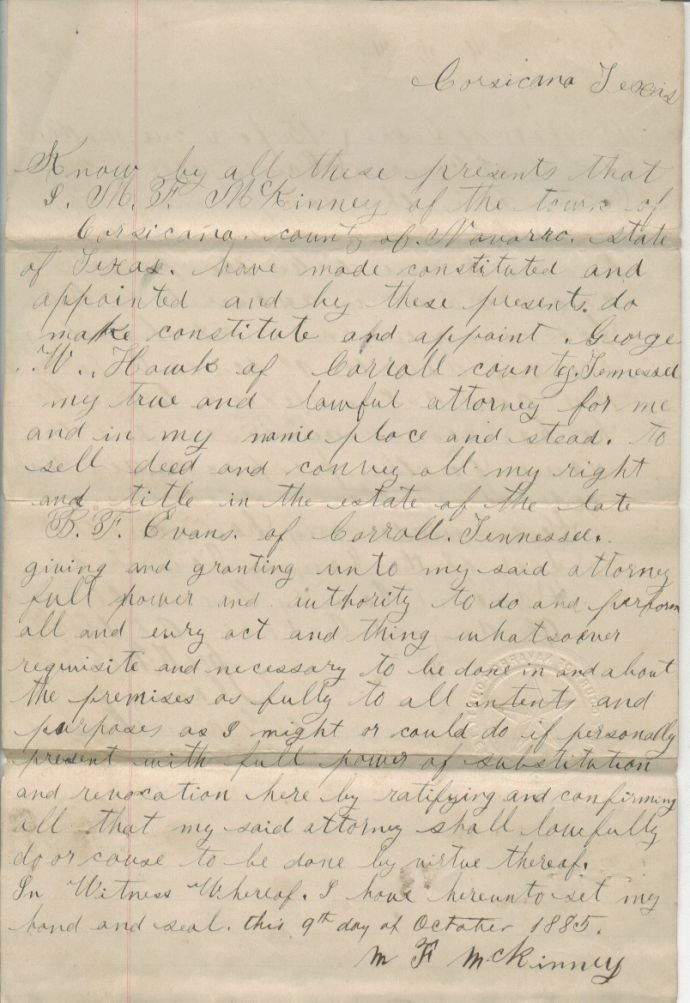 Corsicana Texas
Know by all these presents that
I. M. F. McKinney of the town of
Corsicana. county of. Navarro. state
of Texas. have made constituted and
appointed and by these presents. do
make constitute and appoint. George
W. Hawk of Carroll county, Tennessee
my true and lawful attorney for me
and in my name place and stead. to
sell deed and convey all my right
and title in the estate of the late
B. F. Evans. of Carroll. Tennessee.
giving and granting unto my said attorney
full power and authority to do and perform
all and evry act and thing whatsoever
requisite and necessary to be done in and about
the premises as fully to all intents and
purposes as I might or could do if personally
present with full power of substitution
and revocation here by ratifying and confirming
all that my said attorney shall lawfully
do or cause to be done by virtue thereof.
In Witness Whereof. I have hereunto set my
hand and seal. this 9th day of October 1885.
M F McKinney